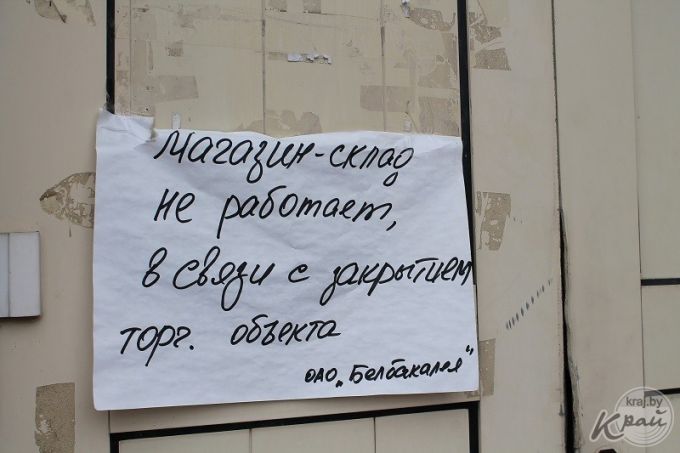 Магазин-склад
не работает,
в связи с закрытием
торг. объекта
ОАО „Белбакалея"
kraj.by
Край